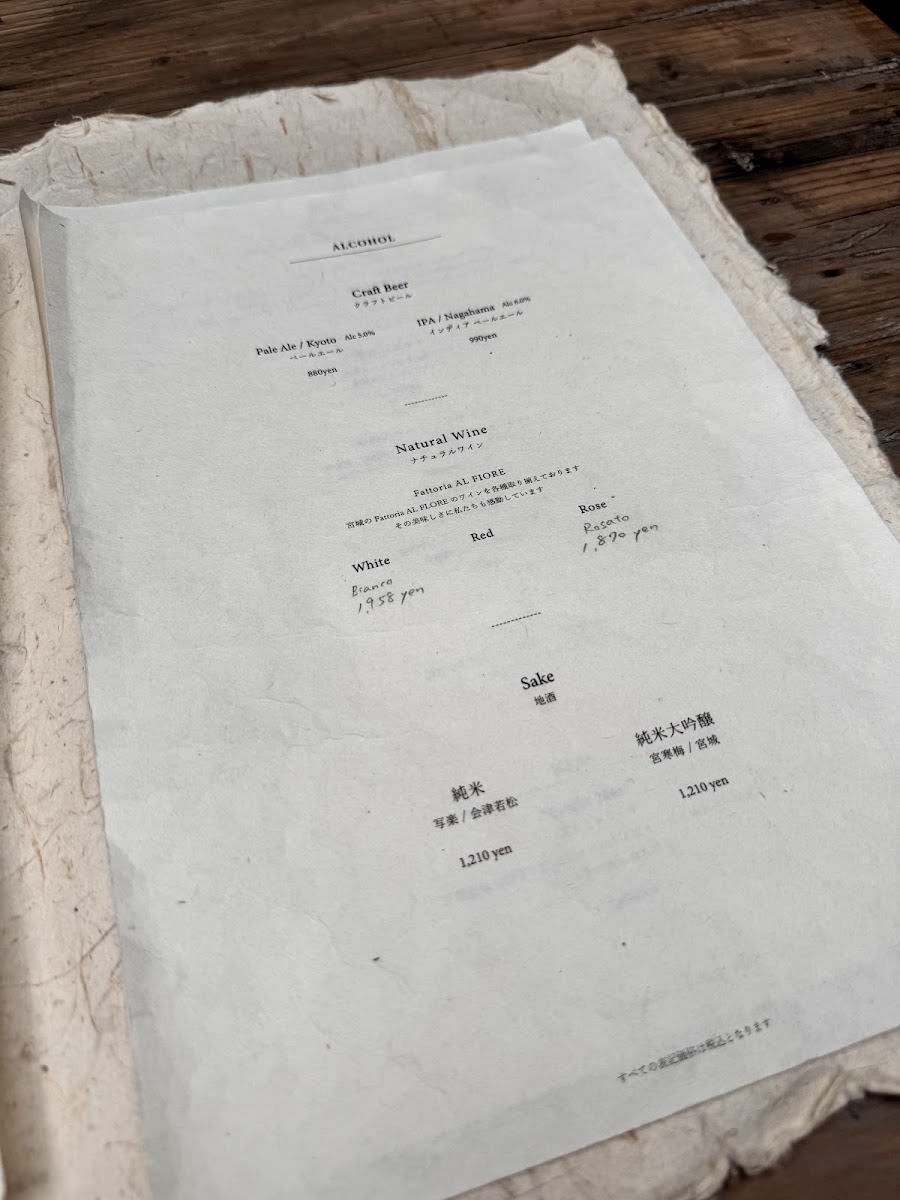 ALCOHOL
Craft Beer
クラフトビール
Pale Ale / Kyoto Alc 5.0%
ペールエール
880yen
IPA / Nagahama Alc 6.0%
インディア ペールエール
990yen
Natural Wine
ナチュラルワイン
Fattoria AL FIORE
宮城の Fattoria AL FLORE のワインを各種取り揃えております
その美味しさに私たちも感動しています
White
Bianco
1,958 yen
Red
Rose
Rosato
1,870 yen
Sake
地酒
純米
写楽 / 会津若松
1,210 yen
純米大吟醸
宮寒梅 / 宮城
1,210 yen
すべての表記価格は税込となります